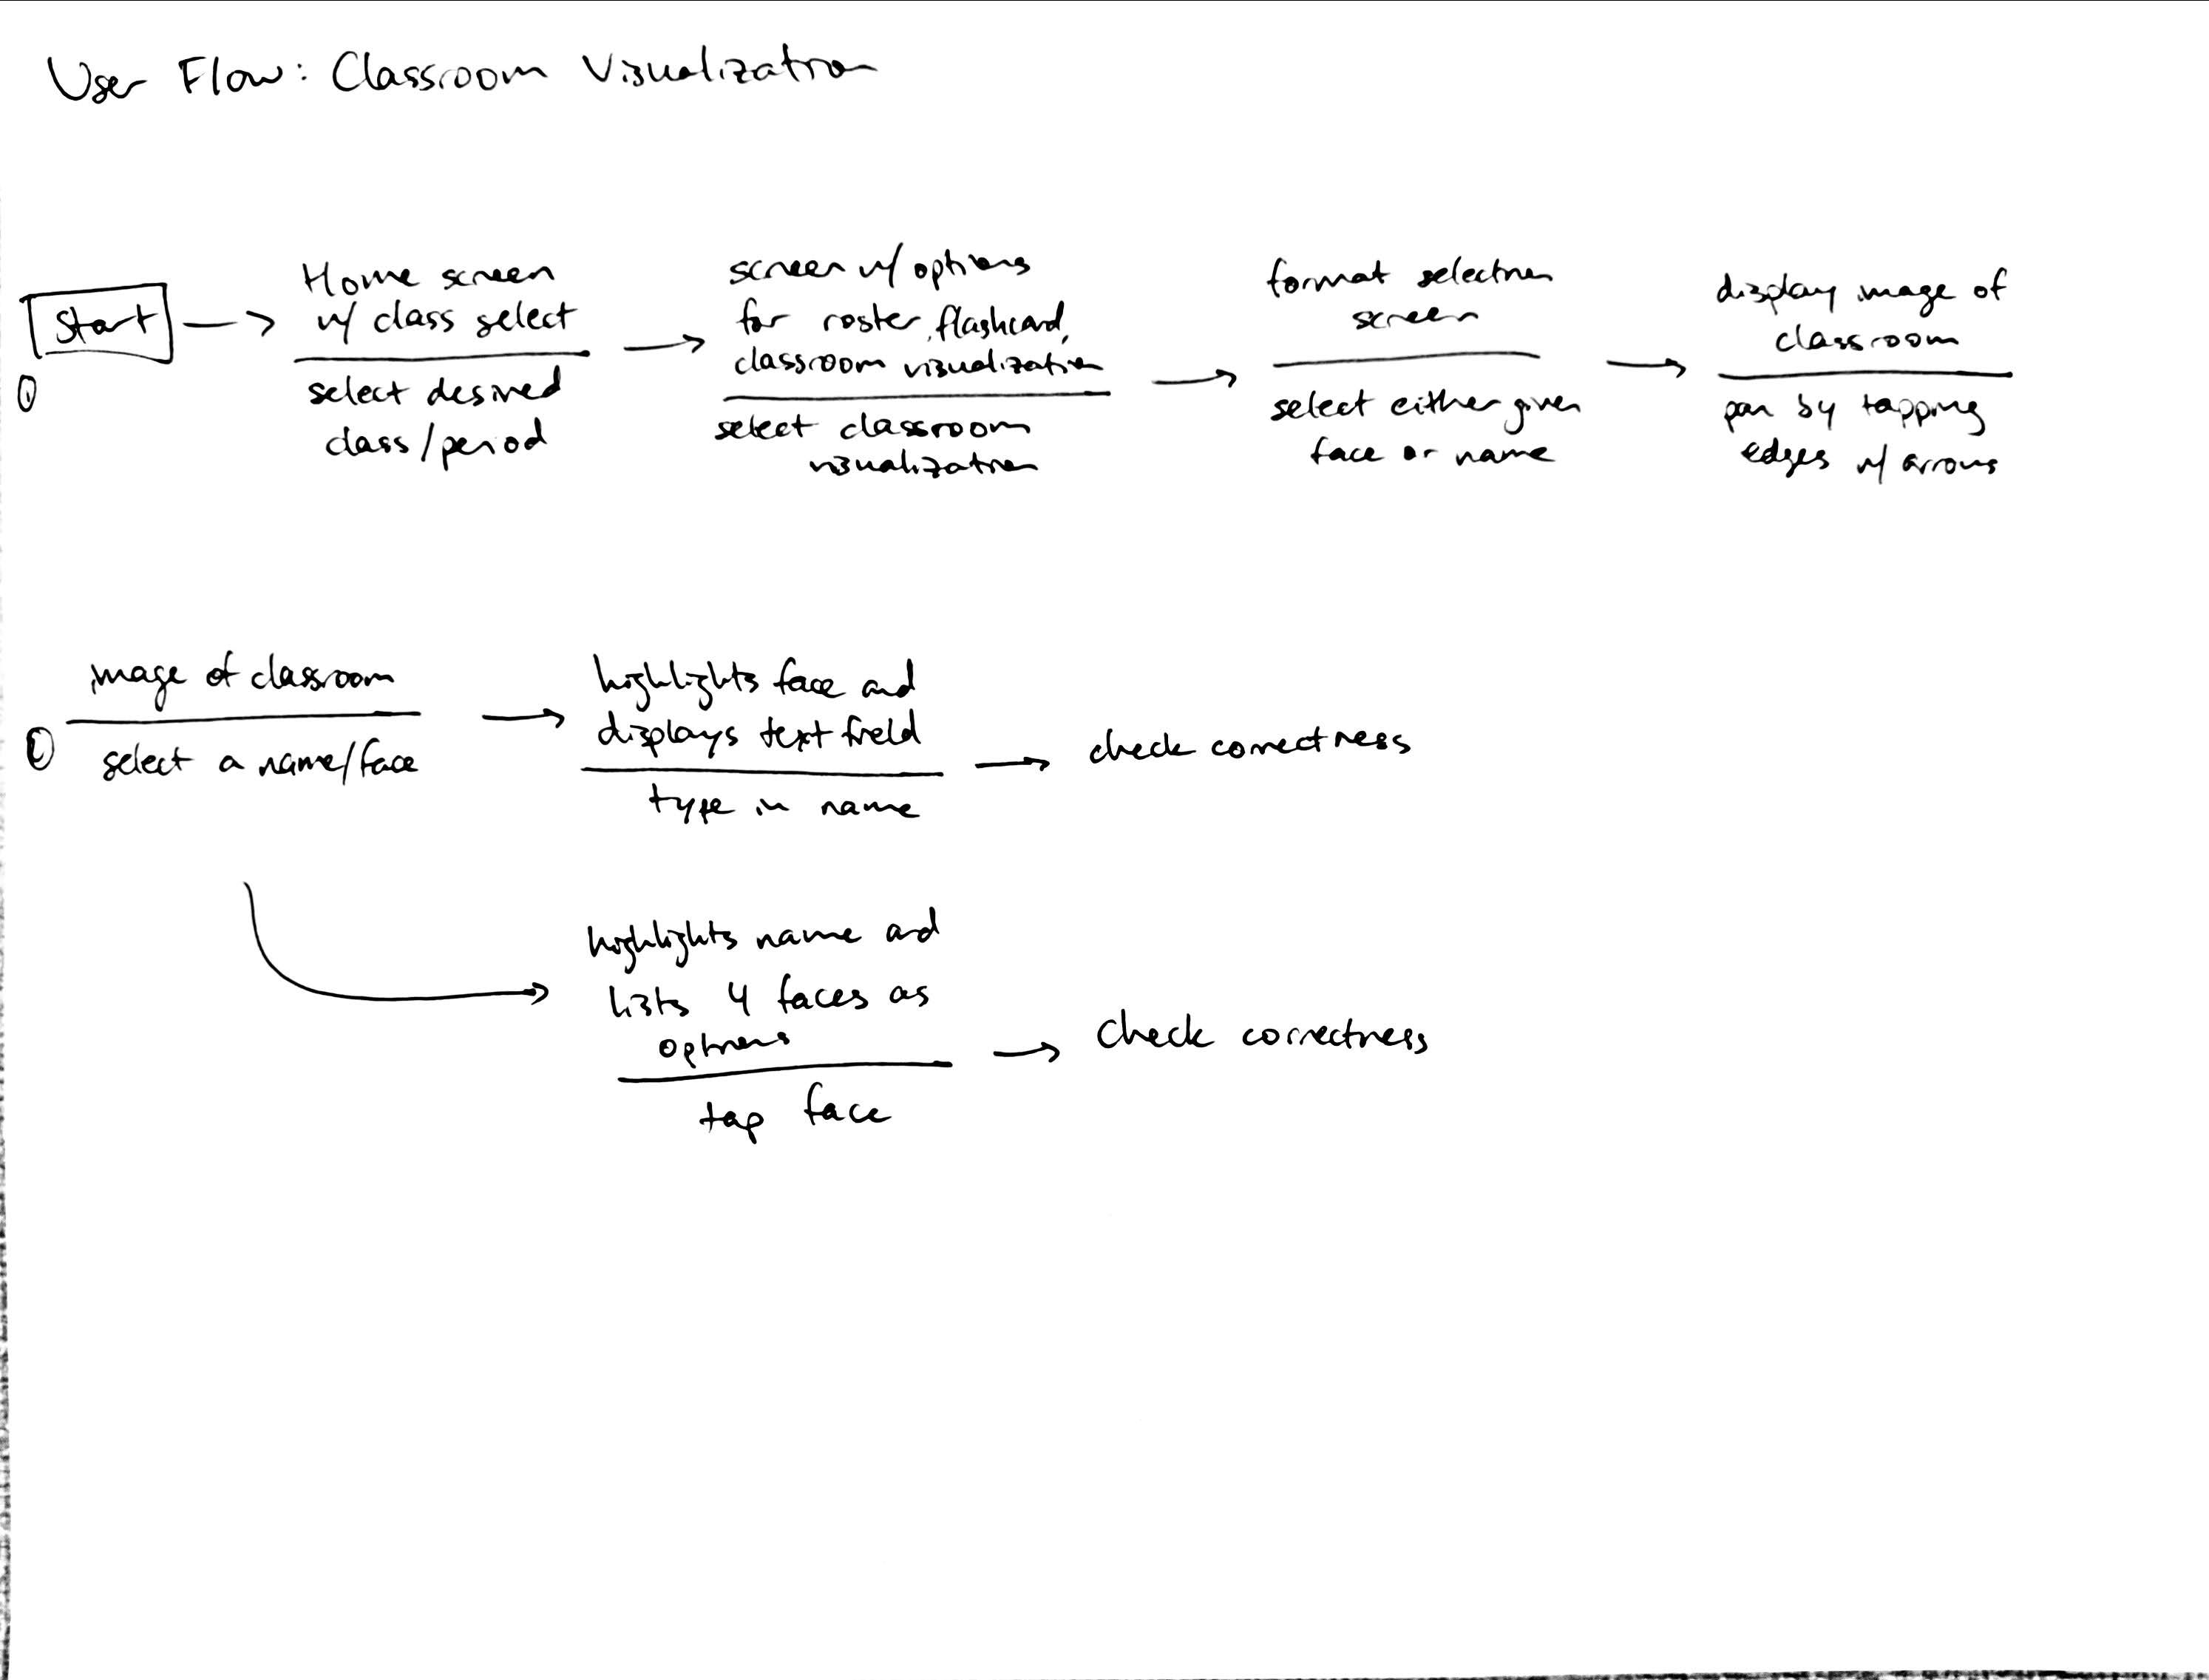 User Flow: Classroom Visualization
Start
①
Home screen
w/ class select
select desired
class/period
screen w/ options
for roster, flashcard,
classroom visualization
select classroom
visualization
format selection
screen
select either given
face or name
display image of
classroom
pan by tapping
edges w/ arrows
image of classroom
select a name/face
highlights face and
displays text field
type in name
check correctness
highlights name and
lists 4 faces as
options
tap face
check correctness